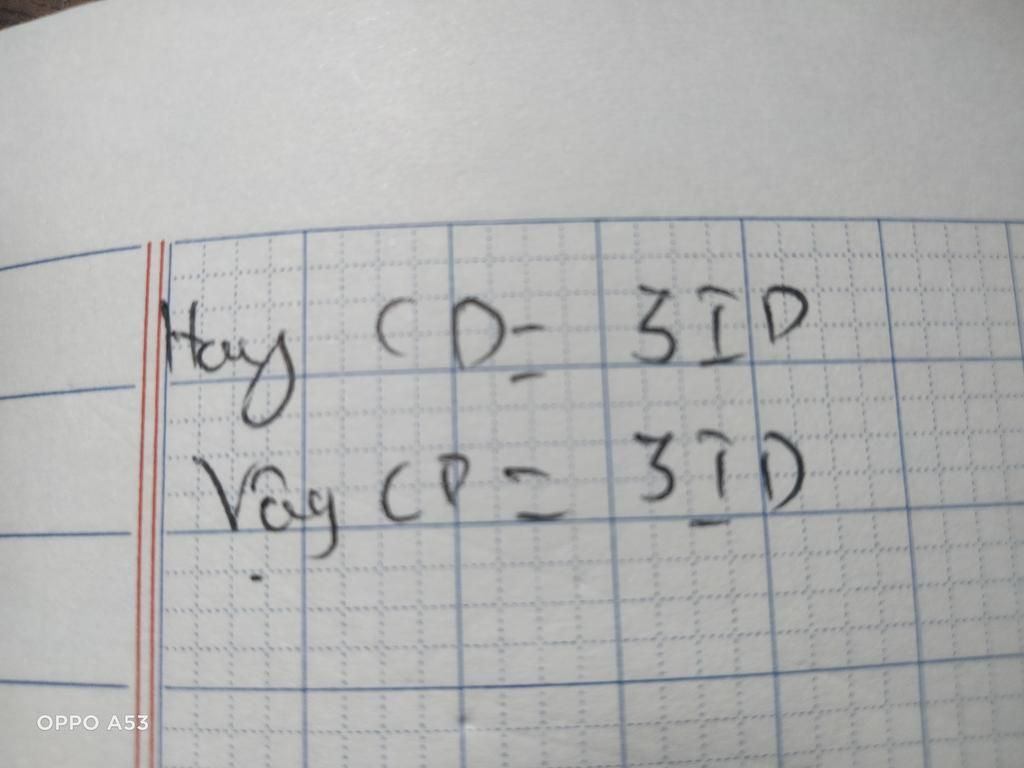 Hay CD = 3ID
Vậy CD = 3ID
OPPO A53